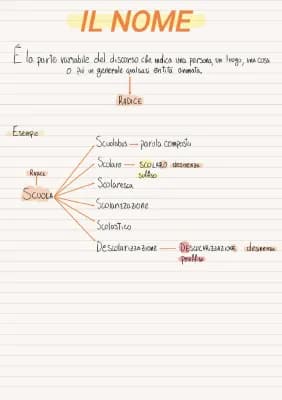 IL NOME
È la parte variabile del discorso che indica una persona, un luogo, una cosa
o più in generale qualsiasi entità animata.
RADICE
Esempio
Scuolabus — parola composta
Scolaro — SCOLARO desinenza
suffisso
RADICE
Scolaresca
SCUOLA
Scolarizzazione
Scolastico
Descolarizzazione — DESCOLARIZZAZIONE desinenza
prefisso